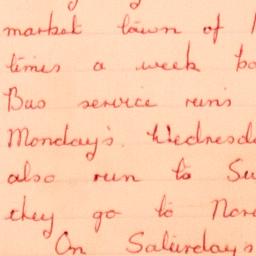 market town of
times a week
Bus service runs
Monday's. Wednesd
also run to Su
they go to Nor
On Saturday's